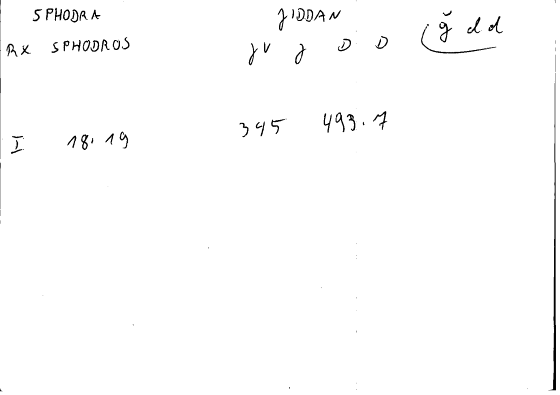 SPHODRA JIDDAN
RX SPHODROS JV J D D ǧ d d
I 18.19 345 493.7